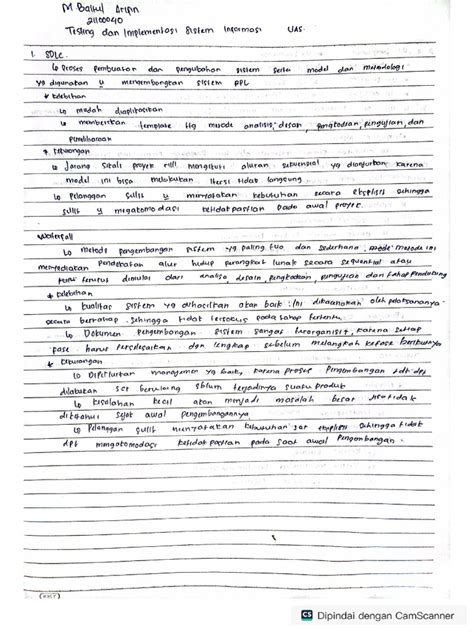 M Baitul Aripn
21100040
Testing dan Implementasi Sistem Informasi UAS
1. SDLC
↳ Proses pembuatan dan pengubahan sistem serta model dan metodologi
yg digunakan u mengembangkan sistem RPL
* kelebihan
↳ mudah diaplikasikan
↳ memberikan template ttg metode analisis, desain, pengkodean, pengujian, dan
pemeliharaan
* kekurangan
↳ Jarang sekali proyek riil mengikuti aluran sekuensial yg dianjurkan karena
model ini bisa melakukan iterasi tidak langsung
↳ Pelanggan sulit u menyatakan kebutuhan secara eksplisit sehingga
sulit u megatomodasi ketidakpastian pada awal proyek.
Waterfall
↳ metode pengembangan sistem yg paling tua dan sederhana, mode metode ini
menyediakan pendekatan alur hidup perangkat lunak secara sequential atau
terurut dimulai dari analisa, desain, pengkodean, pengujian dan tahap pendukung
* kelebihan
↳ kualitas sistem yg dihasilkan akan baik. Ini dikarenakan oleh pelaksananya
secara bertahap. Sehingga tidak terfokus pada tahap tertentu.
↳ Dokumen pengembangan sistem sangat terorganisir, karena setiap
fase harus terselesaikan dan lengkap sebelum melangkah kefase berikutnya
* kekurangan
↳ Diperlukan manajemen yg baik, karena proses pengembangan tdk dpt
dilakukan scr berulang sblum terjadinya suatu produk
↳ kesalahan kecil akan menjadi masalah besar jika tidak
diketahui sejak awal pengembangannya
↳ Pelanggan sulit menyatakan kebutuhan scr eksplisit sehingga tidak
dpt mengatomodasi ketidakpastian pada saat awal pengembangan.
CS Dipindai dengan CamScanner